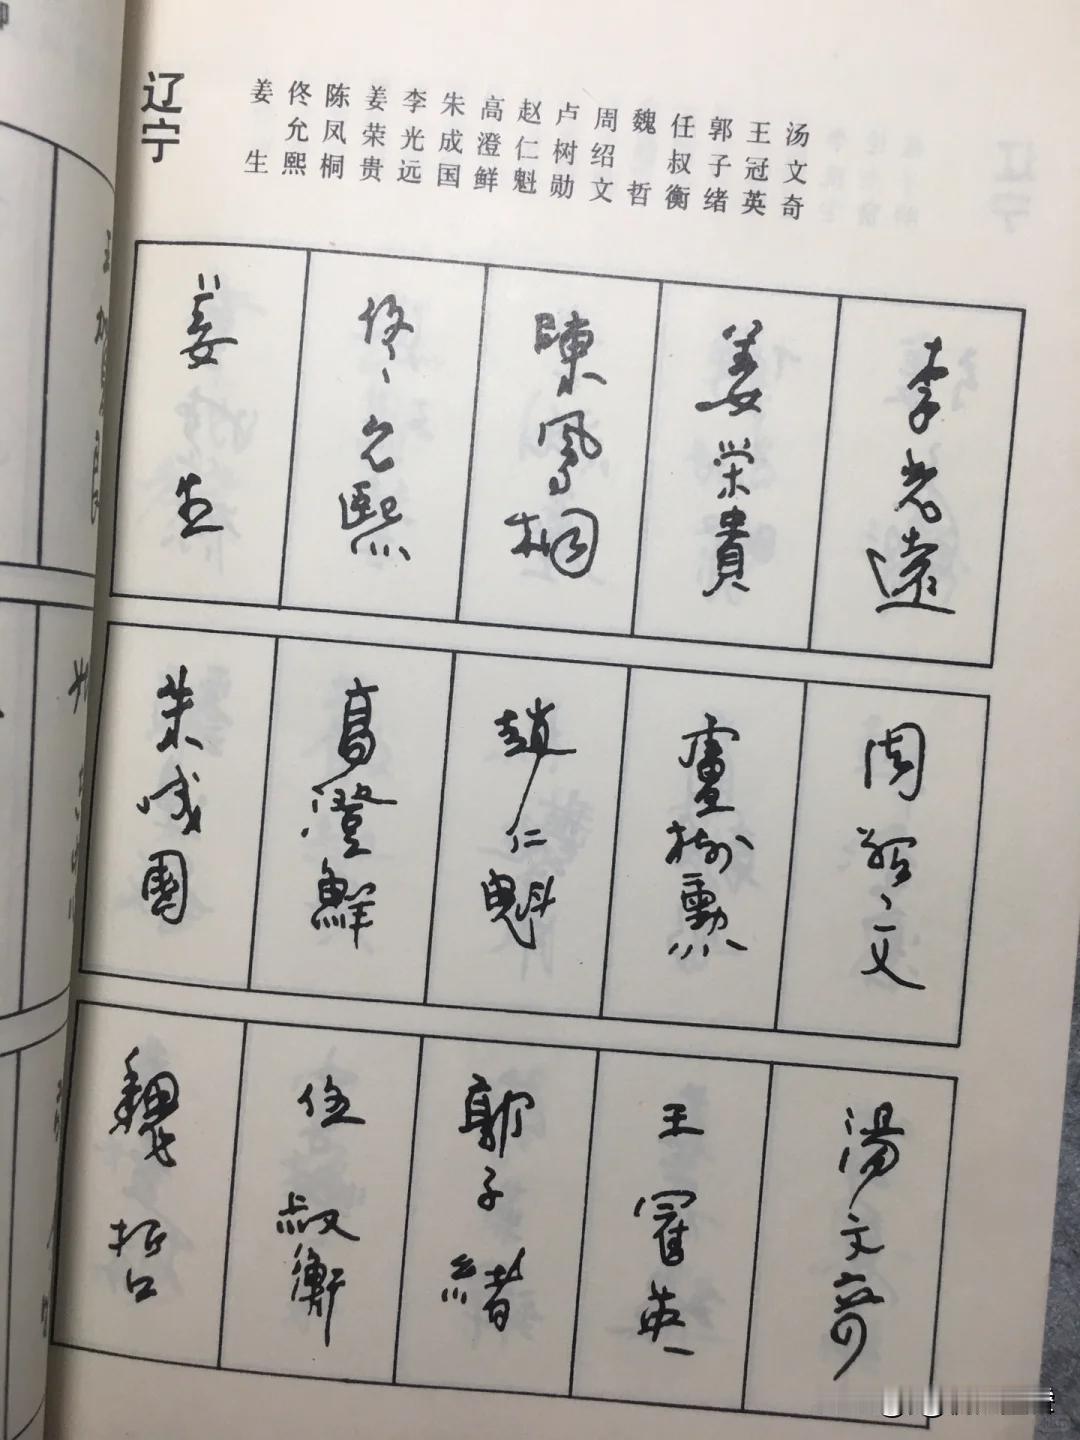 辽宁
姜生
佟允熙
陈凤桐
姜荣贵
李光远
朱成国
高澄鲜
赵仁魁
卢树勋
周绍文
魏哲
任叔衡
郭子绪
王冠英
汤文奇
姜生
佟允熙
陳鳳桐
姜荣貴
李光遠
朱成國
高澄鮮
趙仁魁
盧樹勳
周紹文
魏哲
任叔衡
郭子緒
王冠英
湯文奇